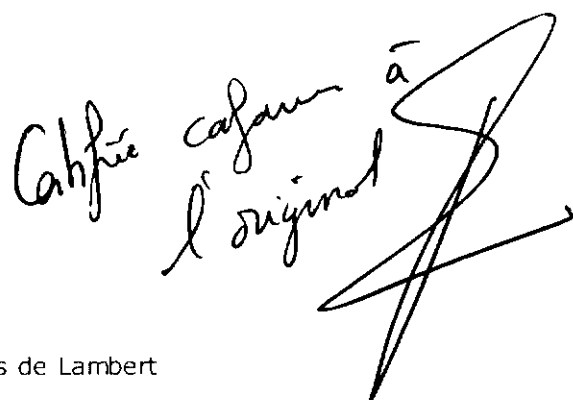 Certifiée conforme à
l'original
s de Lambert